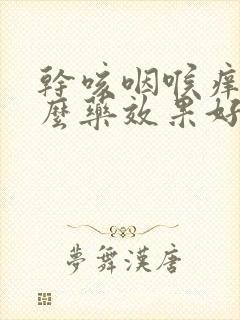 幹咳咽喉痒
麼藥效果好
夢舞漢唐